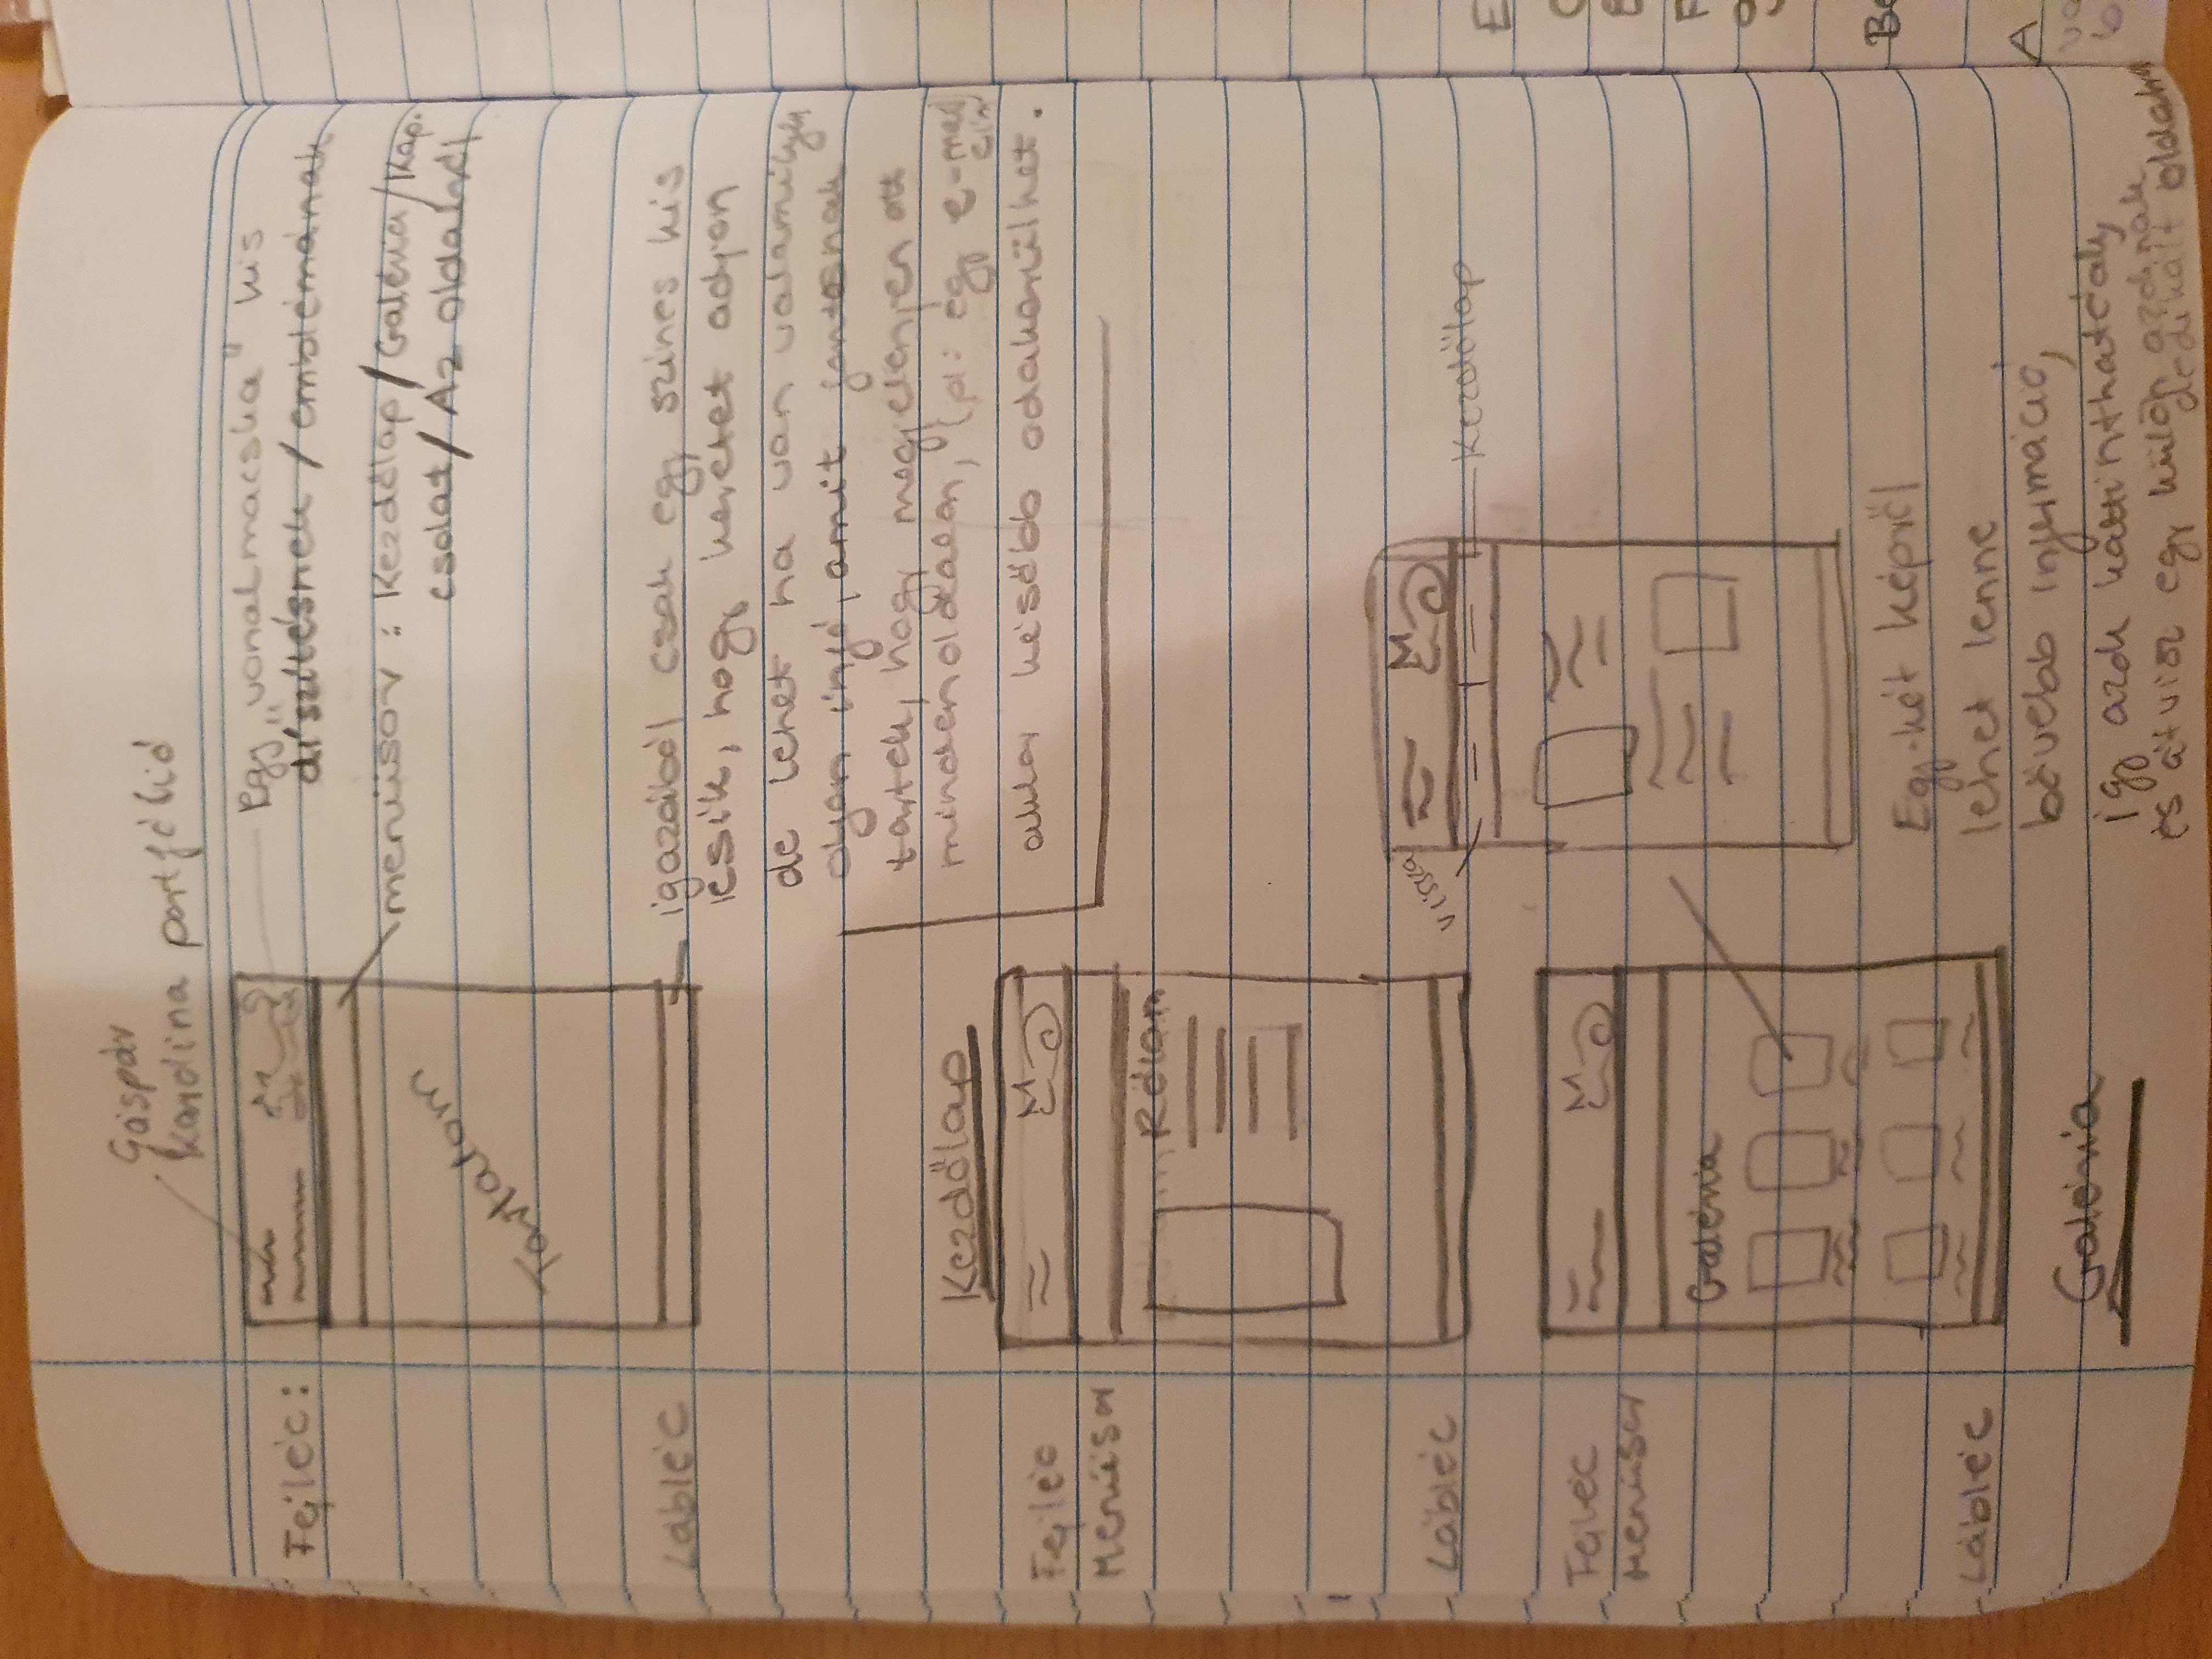 Gáspár
Karolina portfólió
Fejléc:
Egy „vonalmacska" kis
díszítésnek / emblémának
menüsor : Kezdőlap / Galéria / Kap.
csolat / Az oldalról
Tartalom
Lábléc
igazából csak egy színes kis
csík, hogy keretet adjon
de lehet ha van valamilyen
olyan infó, amit fontosnak
tartok, hogy megjelenjen ott
minden oldalon, (pl: egy e-mail
cím
akkor később odakerülhet.
Kezdőlap
Fejléc
Menüsor
Rólam
Lábléc
vissza
Kezdőlap
Fejléc
Menüsor
Galéria
Lábléc
Galéria
Egy-két képről
lehet lenne
bővebb információ,
így azok kattinthatóak,
és átvisz egy külön azoknak
dedikált oldalra
E
B
F
Be
A
b